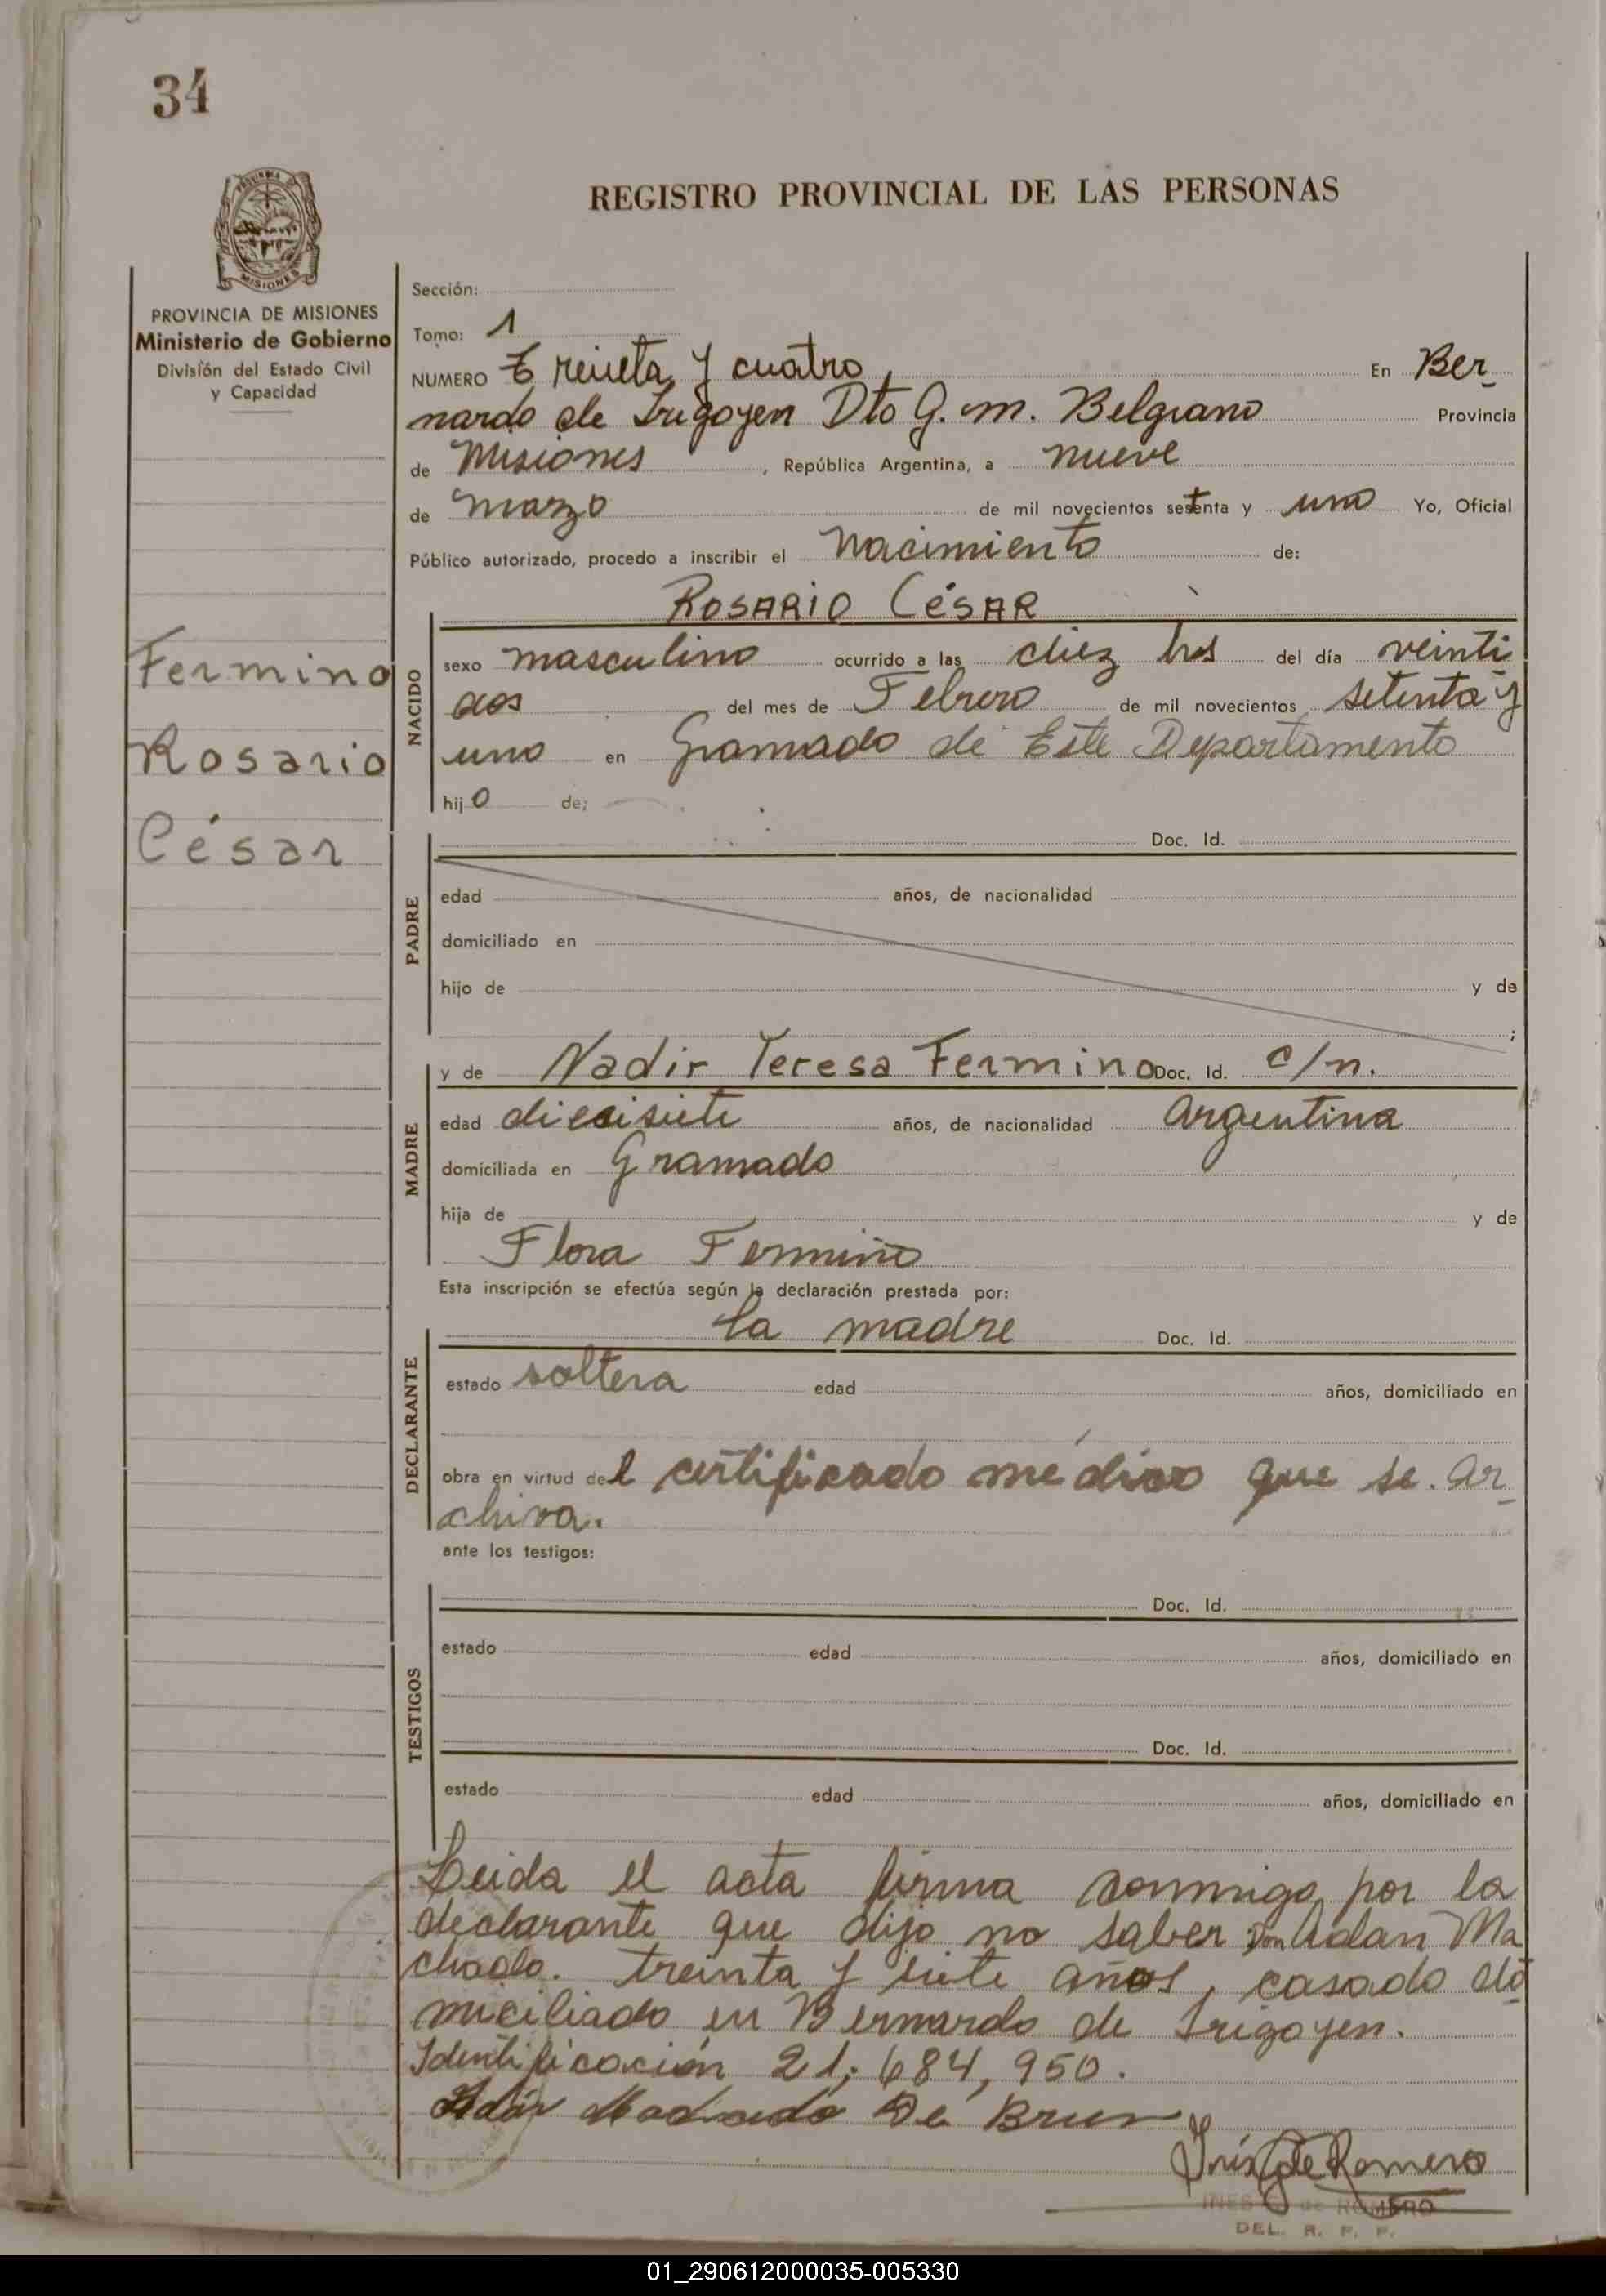 34
REGISTRO PROVINCIAL DE LAS PERSONAS
MISIONES
PROVINCIA DE MISIONES
Ministerio de Gobierno
División del Estado Civil
y Capacidad
Fermino
Rosario
César
Sección:
Tomo: 1
NUMERO Treinta y cuatro, En Ber-
nardo de Irigoyen Dto G. M. Belgrano Provincia
de Misiones, República Argentina, a nueve
de marzo de mil novecientos setenta y uno Yo, Oficial
Público autorizado, procedo a inscribir el Nacimiento de:
ROSARIO CÉSAR
NACIDO
sexo masculino ocurrido a las diez hrs del día veinti
dos del mes de Febrero de mil novecientos setenta y
uno en Gramado de Este Departamento
hijo de;
PADRE
Doc. Id.
edad años, de nacionalidad
domiciliado en
hijo de y de
;
MADRE
y de Nadir Teresa Fermino Doc. Id. c/n.
edad diecisiete años, de nacionalidad Argentina
domiciliada en Gramado
hija de y de
Flora Fermino
Esta inscripción se efectúa según la declaración prestada por:
DECLARANTE
la madre Doc. Id.
estado soltera edad años, domiciliado en
obra en virtud del certificado médico que se. ar-
chiva.
ante los testigos:
TESTIGOS
Doc. Id.
estado edad años, domiciliado en
Doc. Id.
estado edad años, domiciliado en
Leida el acta firma conmigo, por la
declarante que dijo no saber Don Adan Ma
chado. treinta y siete años, casado do
miciliado en Bernardo de Irigoyen.
Identificación 21; 684, 950.
Adão Machado De
Inés G de Romero
INES G. de ROMERO
DEL. R. P. P.
01_290612000035-005330